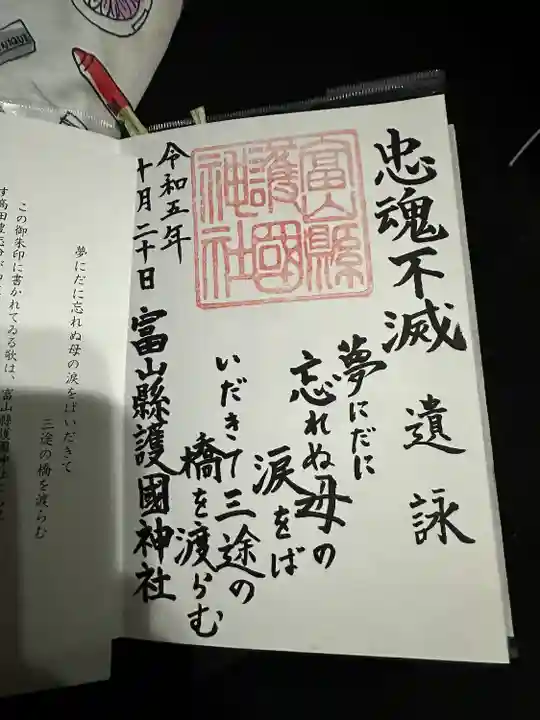 忠魂不滅
遺詠
夢にだに
忘れぬ母の
涙をば
いだきて三途の
橋を渡らむ
富山縣護國神社
富山縣護國神社
令和五年
十月二十日
夢にだに忘れぬ母の涙をばいだきて
三途の橋を渡らむ
この御朱印に書かれてゐる歌は、富山縣護國神社
す高田豊